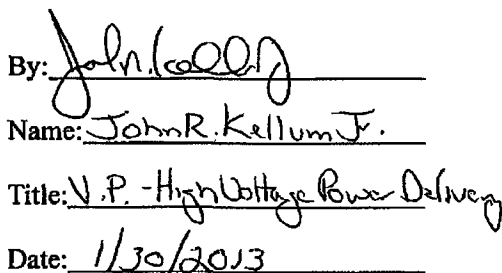 By:
Name: John R. Kellum Jr.
Title: V.P. - High Voltage Power Delivery
Date: 1/30/2013